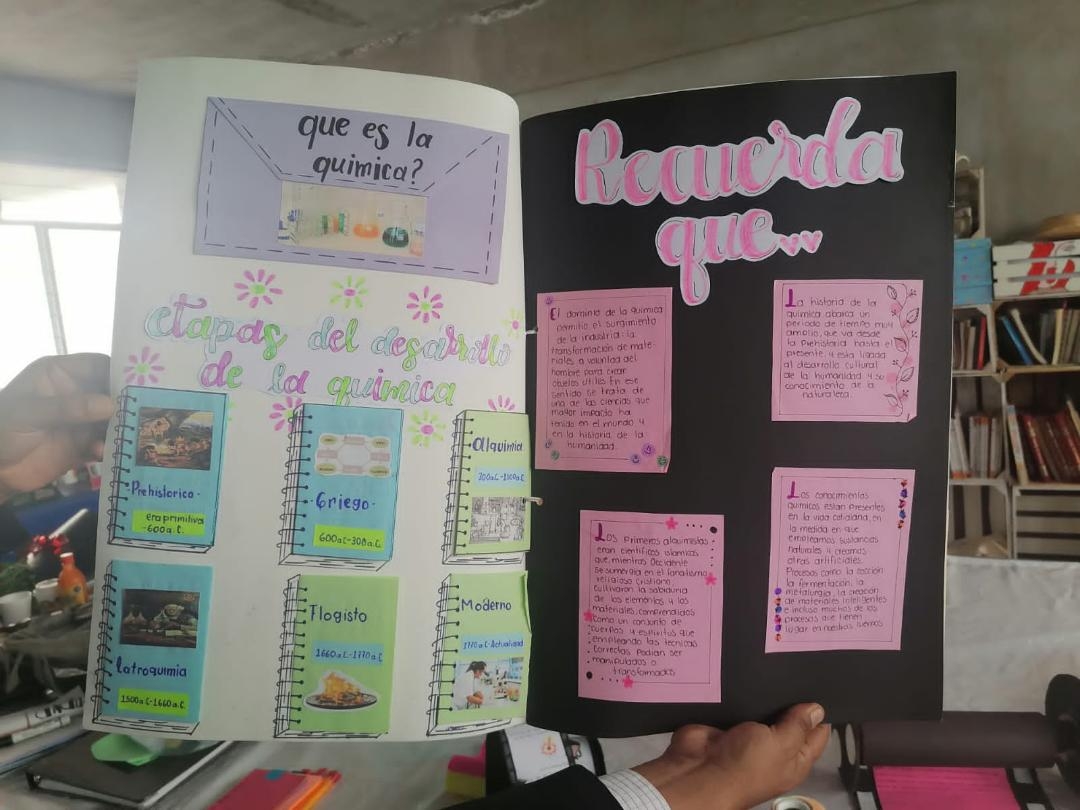 que es la
quimica?
etapas del desarrollo
de la quimica
Prehistorico
era primitiva
-600 a.C.
Griego
600a.C-300a.C
Alquimia
300a.C-1500a.C
Iatroquimia
1500a.C-1660a.C.
Flogisto
1660a.C-1770a.C
Moderno
1770a.C-Actualidad
Recuerda
que...
El dominio de la quimica
permitio el surgimiento
de la industria: la
transformación de mate-
riales a voluntad del
hombre para crear
objetos utiles En ese
sentido se trata de
una de las ciencias que
mayor impacto ha
tenido en el mundo y
en la historia de la
humanidad.
La historia de la
quimica abarca un
periodo de tiempo muy
amplio, que va desde
la prehistoria hasta el
presente, y esta ligada
al desarrollo cultural
de la humanidad y su
conocimiento de la
naturaleza.
Los primeros alquimistas
eran cientificos islamicos
que, mientras Occidente
se sumergia en el fanatismo
religioso cristiano,
cultivaron la sabiduria
de los elementos y los
materiales, comprendidos
como un conjunto de
cuerpos y espiritus que
empleando las tecnicas
correctas podian ser
manipulados o
transformados
Los conocimientos
quimicos estan presentes
en la vida cotidiana, en
la medida en que
empleamos sustancias
naturales y creamos
otras artificiales.
Procesos como la cocción
la fermentación, la
metalurgia, la creación
de materiales inteligentes
e incluso muchos de los
procesos que tienen
lugar en nuestros cuerpos